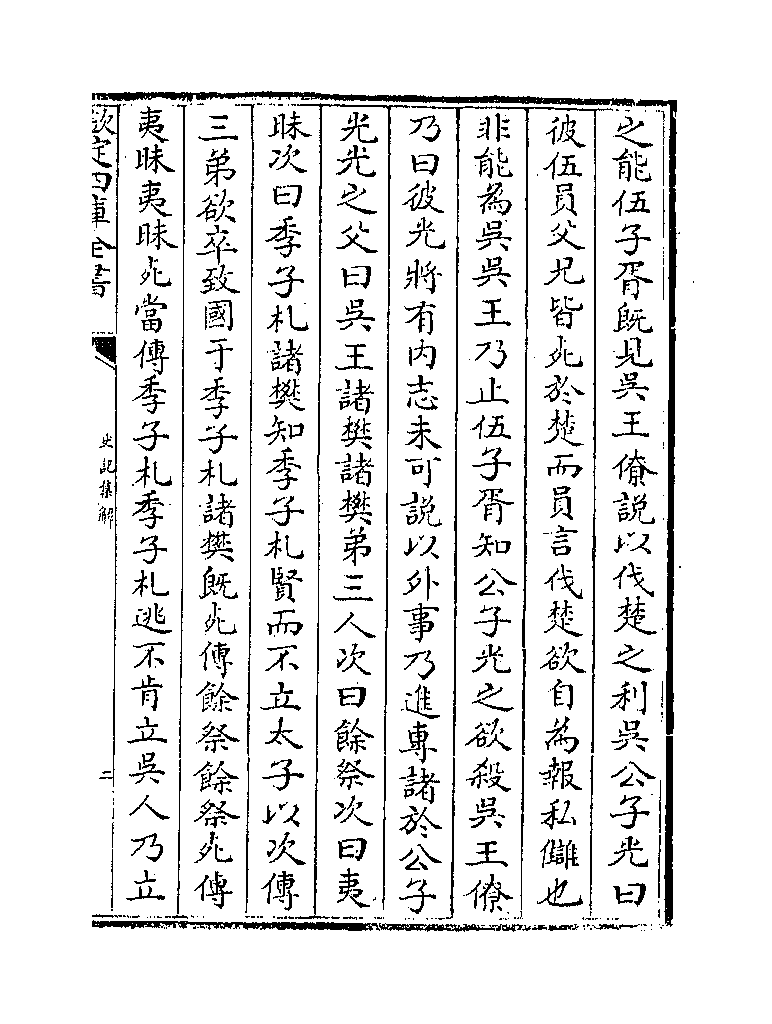 之能伍子胥既見吳王僚說以伐楚之利吳公子光曰
彼伍員父兄皆死於楚而員言伐楚欲自為報私讎也
非能為吳吳王乃止伍子胥知公子光之欲殺吳王僚
乃曰彼光將有內志未可說以外事乃進專諸於公子
光光之父曰吳王諸樊諸樊弟三人次曰餘祭次曰夷
眛次曰季子札諸樊知季子札賢而不立太子以次傳
三弟欲卒致國于季子札諸樊既死傳餘祭餘祭死傳
夷眛夷眛死當傳季子札季子札逃不肯立吳人乃立
欽定四庫全書
史記集解
二